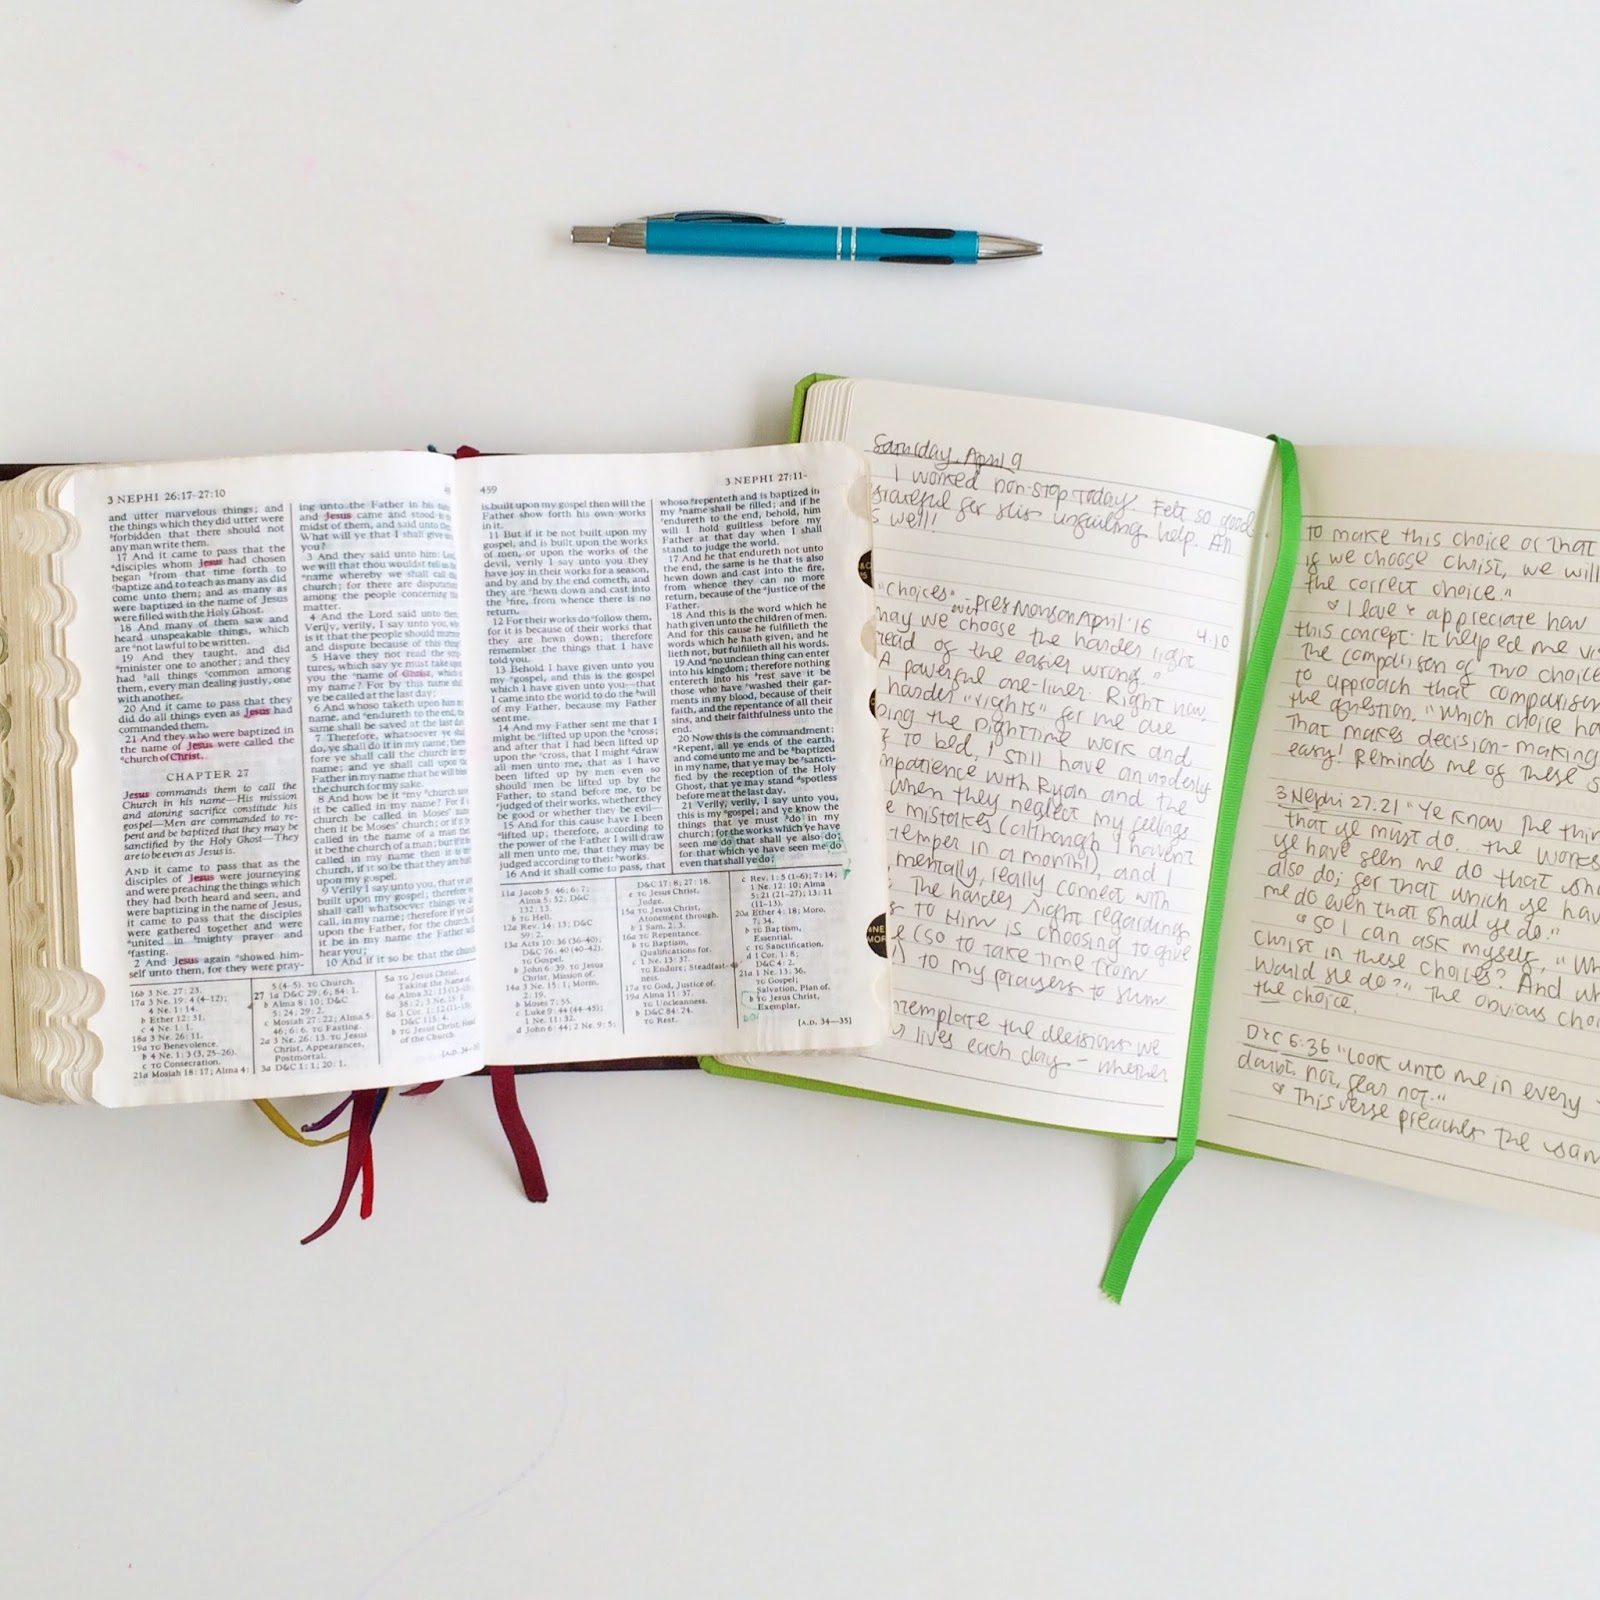 3 NEPHI 26:17–27:10
and utter marvelous things; and
the things which they did utter were
forbidden that there should not
any man write them.
17 And it came to pass that the
disciples whom Jesus had chosen
began from that time forth to
baptize and to teach as many as did
come unto them; and as many as
were baptized in the name of Jesus
were filled with the Holy Ghost.
18 And many of them saw and
heard unspeakable things, which
are not lawful to be written.
19 And they taught, and did
minister one to another; and they
had all things common among
them, every man dealing justly, one
with another.
20 And it came to pass that they
did do all things even as Jesus had
commanded them.
21 And they who were baptized in
the name of Jesus were called the
church of Christ.
CHAPTER 27
Jesus commands them to call the
Church in his name—His mission
and atoning sacrifice constitute his
gospel—Men are commanded to re-
pent and be baptized that they may be
sanctified by the Holy Ghost—They
are to be even as Jesus is.
AND it came to pass that as the
disciples of Jesus were journeying
and were preaching the things which
they had both heard and seen, and
were baptizing in the name of Jesus,
it came to pass that the disciples
were gathered together and were
united in mighty prayer and
fasting.
2 And Jesus again showed him-
self unto them, for they were pray-
ing unto the Father in his
and Jesus came and stood
midst of them, and said unto
What will ye that I shall give
you?
3 And they said unto him:
we will that thou wouldst tell
name whereby we shall call
church; for there are
among the people concerning
matter.
4 And the Lord said unto
Verily, verily, I say unto you,
is it that the people should
and dispute because of this
5 Have they not read the
tures, which say ye must take
you the name of Christ, which
my name? For by this name
ye be called at the last day;
6 And whoso taketh upon him
name, and endureth to the end,
same shall be saved at the last day.
7 Therefore, whatsoever ye shall
do, ye shall do it in my name;
fore ye shall call the church
name; and ye shall call upon
Father in my name that he will bless
the church for my sake.
8 And how be it my church save
be called in my name? For if
church be called in Moses'
then it be Moses' church; or if
called in the name of a man
be the church of a man; but if it be
called in my name then it is
church, if it so be that they are built
upon my gospel.
9 Verily I say unto you, that ye are
built upon my gospel; therefore ye
shall call whatsoever things ye
call, in my name; therefore if ye
upon the Father, for the church,
it be in my name the Father
hear you;
10 And if it so be that the church
16b 3 Ne. 27:23.
17a 3 Ne. 19:4 (4–12);
4 Ne. 1:14.
b Ether 12:31.
c 4 Ne. 1:1.
18a 3 Ne. 26:11.
19a TG Benevolence.
b 4 Ne. 1:3 (3, 25–26).
c TG Consecration.
21a Mosiah 18:17; Alma 4:
5 (4–5). TG Church.
27 1a D&C 29:6; 84:1.
b Alma 8:10; D&C
5:24; 29:2.
c Mosiah 27:22; Alma
46; 6:6. TG Fasting.
2a 3 Ne. 26:13. TG Jesus
Christ, Appearances,
Postmortal.
3a D&C 1:1; 20:1.
5a TG Jesus Christ,
Taking the Name of
of the Church.
459
3 NEPHI 27:11–
is built upon my gospel then will the
Father show forth his own works
in it.
11 But if it be not built upon my
gospel, and is built upon the works
of men, or upon the works of the
devil, verily I say unto you they
have joy in their works for a season,
and by and by the end cometh, and
they are hewn down and cast into
the fire, from whence there is no
return.
12 For their works do follow them,
for it is because of their works that
they are hewn down; therefore
remember the things that I have
told you.
13 Behold I have given unto you
my gospel, and this is the gospel
which I have given unto you—that
I came into the world to do the will
of my Father, because my Father
sent me.
14 And my Father sent me that I
might be lifted up upon the cross;
and after that I had been lifted up
upon the cross, that I might draw
all men unto me, that as I have
been lifted up by men even so
should men be lifted up by the
Father, to stand before me, to be
judged of their works, whether they
be good or whether they be evil—
15 And for this cause have I been
lifted up; therefore, according to
the power of the Father I will draw
all men unto me, that they may be
judged according to their works.
16 And it shall come to pass, that
whoso repenteth and is baptized in
my name shall be filled; and if he
endureth to the end, behold, him
will I hold guiltless before my
Father at that day when I shall
stand to judge the world.
17 And he that endureth not unto
the end, the same is he that is also
hewn down and cast into the fire,
from whence they can no more
return, because of the justice of the
Father.
18 And this is the word which he
hath given unto the children of men.
And for this cause he fulfilleth the
words which he hath given, and he
lieth not, but fulfilleth all his words.
19 And no unclean thing can enter
into his kingdom; therefore nothing
entereth into his rest save it be
those who have washed their gar-
ments in my blood, because of their
faith, and the repentance of all their
sins, and their faithfulness unto the
end.
20 Now this is the commandment:
Repent, all ye ends of the earth,
and come unto me and be baptized
in my name, that ye may be sancti-
fied by the reception of the Holy
Ghost, that ye may stand spotless
before me at the last day.
21 Verily, verily, I say unto you,
this is my gospel; and ye know the
things that ye must do in my
church; for the works which ye have
seen me do that shall ye also do;
for that which ye have seen me do
even that shall ye do;
11a Jacob 5:46; 6:7;
Alma 5:52; D&C
132:13.
b TG Hell.
12a Rev. 14:13; D&C
59:2.
13a Acts 10:36 (36–40);
D&C 76:40 (40–42).
TG Gospel.
b John 6:39. TG Jesus
Christ, Mission of.
14a 3 Ne. 15:1; Morm.
2:19.
b Moses 7:55.
c Luke 9:44 (44–45);
1 Ne. 11:32.
d John 6:44; 2 Ne. 9:5;
D&C 17:8; 27:18.
Judge.
15a TG Jesus Christ,
Atonement through.
b 1 Sam. 2:3.
16a TG Repentance.
b TG Baptism,
Qualifications for.
c 1 Ne. 13:37.
TG Endure; Steadfast-
ness.
17a TG God, Justice of.
19a Alma 11:37.
TG Uncleanness.
b D&C 84:24.
TG Rest.
c Rev. 1:5 (1–6); 7:14;
1 Ne. 12:10; Alma
5:21 (21–27); 13:11
(11–13).
20a Ether 4:18; Moro.
7:34.
b TG Baptism,
Essential.
c TG Sanctification.
d 1 Cor. 1:8;
D&C 4:2.
21a 1 Ne. 13:36.
TG Gospel;
Salvation, Plan of.
b TG Jesus Christ,
Exemplar.
[A.D. 34–35]
Saturday, April 9
I worked non-stop today. Felt so good.
grateful for His unfailing help. An
s well!
"Choices" - Pres Monson April '16
4.10
may we choose the harder right
tead of the easier wrong."
A powerful one-liner. Right now,
harder "rights" for me are
ping the nighttime work and
to bed, I still have an underly
mpatience with Ryan and the
when they neglect my feelings
e mistakes (although I haven't
temper in a month!), and I
mentally, really connect with
The harder right regarding
to Him is choosing to give
e (so to take time from
) to my prayers to Him.
ntemplate the decisions we
lives each day - whether
to make this choice or that
if we choose Christ, we will
the correct choice."
I love & appreciate how
this concept. It helped me vi
the comparison of two choice
to approach that comparison
the question. "Which choice ha
That makes decision-making
easy! Reminds me of these s
3 Nephi 27:21 "Ye know the thin
that ye must do. the works
ye have seen me do that sha
also do; for that which ye hav
me do even that shall ye do."
so I can ask myself, "Wh
Christ in these choices? And wh
would He do?" The obvious choi
the choice.
D+C 6:36 "Look unto me in every
doubt not, fear not."
This verse preaches the sam